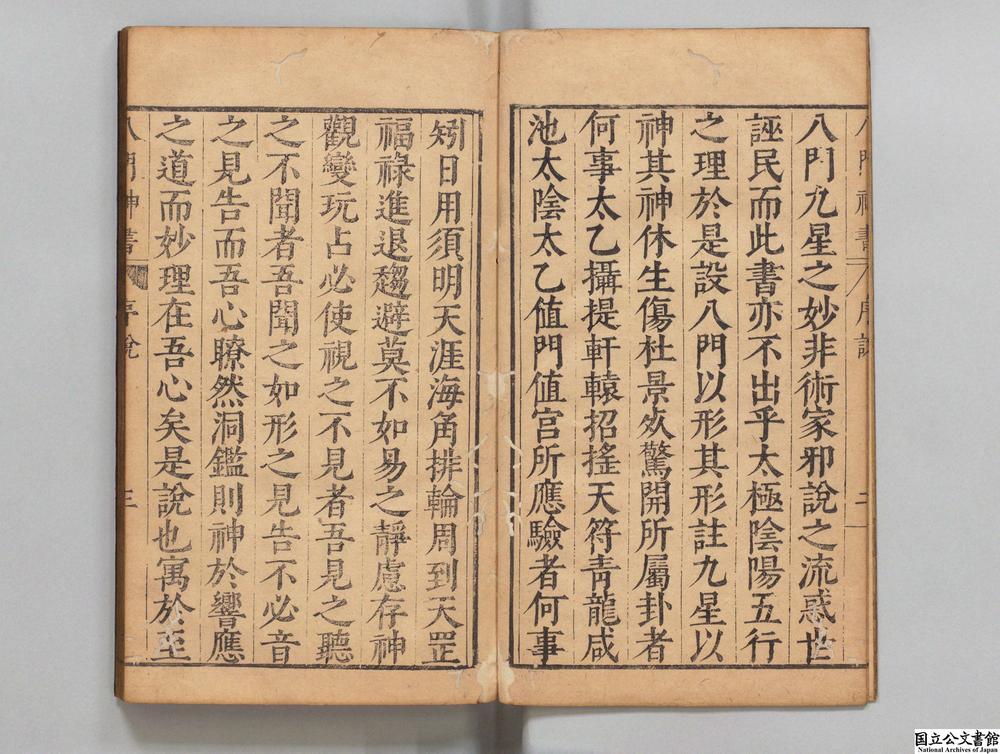 八門九星之妙非術家邪說之流惑世
誣民而此書亦不出乎太極陰陽五行
之理於是設八門以形其形註九星以
神其神休生傷杜景死驚開所屬卦者
何事太乙攝提軒轅招搖天符青龍咸
池太陰太乙值門值宮所應驗者何事
矧日用須明天涯海角排輪周到天罡
福祿進退趨避莫不如易之靜慮存神
觀變玩占必使視之不見者吾見之聽
之不聞者吾聞之如形之見告不必音
之見告而吾心瞭然洞鑑則神於響應
之道而妙理在吾心矣是說也寓於至
八門神書 序說 三
国立公文書館
National Archives of Japan